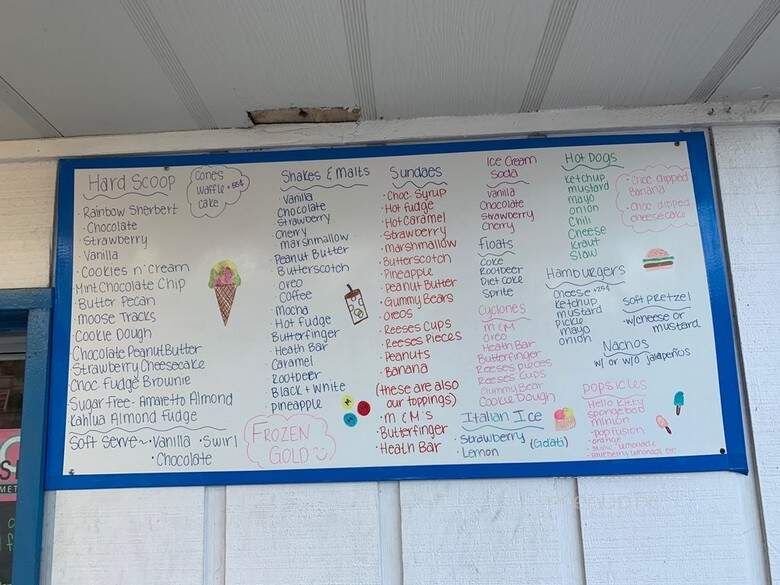 Hard Scoop
• Rainbow Sherbert
• Chocolate
• Strawberry
Vanilla
• Cookies n' Cream
• Mint Chocolate Chip
• Butter Pecan
• Moose Tracks
• Cookie Dough
• Chocolate Peanut Butter
• Strawberry Cheesecake
• Choc Fudge Brownie
• Sugar Free - Amaretto Almond
• Kahlua Almond Fudge
Soft Serve~ • Vanilla • Swirl
• Chocolate
Cones
Waffle
cake
Shakes & Malts
Vanilla
Chocolate
Strawberry
Cherry
Marshmallow
Peanut Butter
Butterscotch
Oreo
Coffee
Mocha
Hot Fudge
Butterfinger
Heath Bar
Caramel
Rootbeer
Black + White
Pineapple
FROZEN
GOLD
Sundaes
• Choc Syrup
• Hot Fudge
• Hot Caramel
• Strawberry
• Marshmallow
• Butterscotch
• Pineapple
• Peanut Butter
• Gummy Bears
• Oreos
• Reeses Cups
• Reeses Pieces
• Peanuts
• Banana
(these are also
our toppings)
• M & M's
• Butterfinger
• Heath Bar
Ice Cream
Soda
Vanilla
Chocolate
Strawberry
Cherry
Floats
Coke
Rootbeer
Diet Coke
Sprite
Cyclones
M & M
Oreo
Heath Bar
Butterfinger
Reeses Pieces
Reeses Cups
Gummy Bear
Cookie Dough
Italian Ice
• Strawberry (Gelati)
• Lemon
Hot Dogs
Ketchup
mustard
mayo
onion
Chili
Cheese
Kraut
Slaw
• Choc dipped
Banana
• Choc dipped
cheesecake
Hamburgers
Cheese
Ketchup
mustard
Pickle
mayo
onion
Soft Pretzel
• w/cheese or
mustard
Nachos
w/ or w/o jalapeños
popsicles
Hello Kitty
spongebob
minion
• popfusion
• orange
lemonade